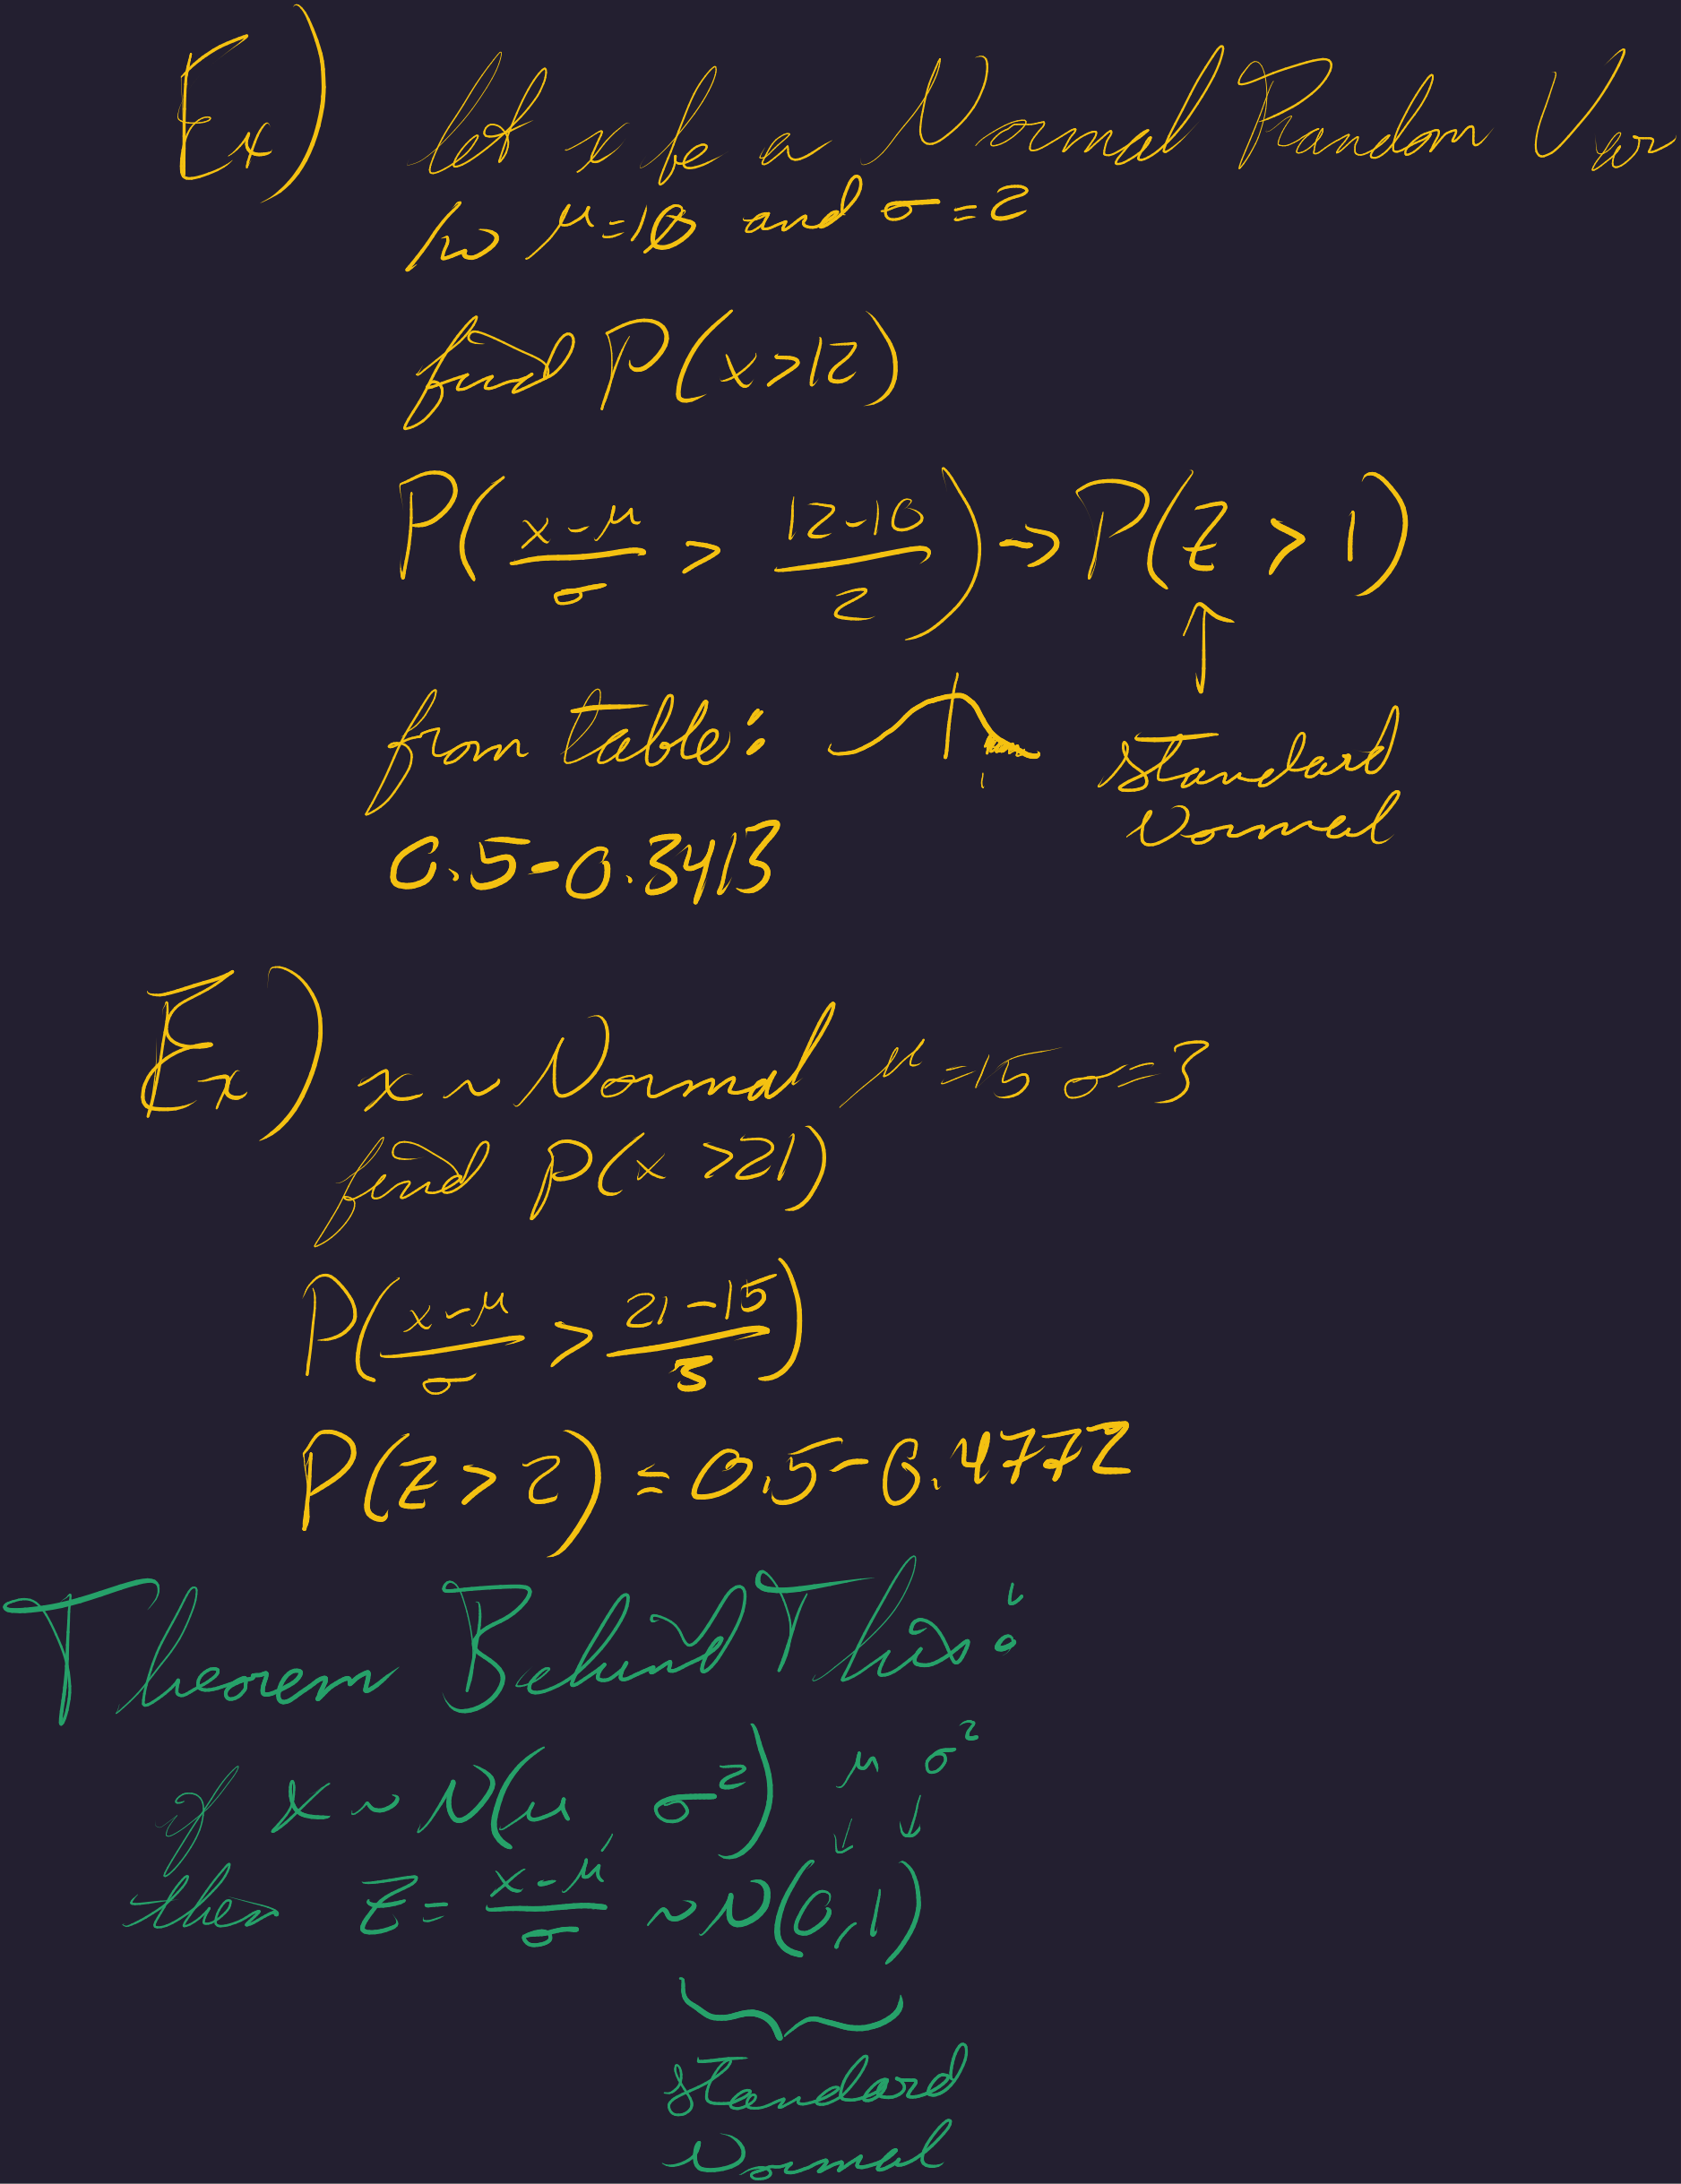 Ex) let x be a Normal Random Var
w μ=10 and σ=2
find P(x>12)
P((x-μ)/σ > (12-10)/2) → P(Z > 1)
from table: Standard
Normal
0.5-0.3413
Ex) x ~ Normal μ=15 σ=3
find P(x >21)
P((x-μ)/σ > (21-15)/3)
P(Z>2) = 0.5-0.4772
Theorem Behind This:
μ σ²
if X ~ N(μ, σ²)
then Z = (x-μ)/σ ~ N(0,1)
Standard
Normal